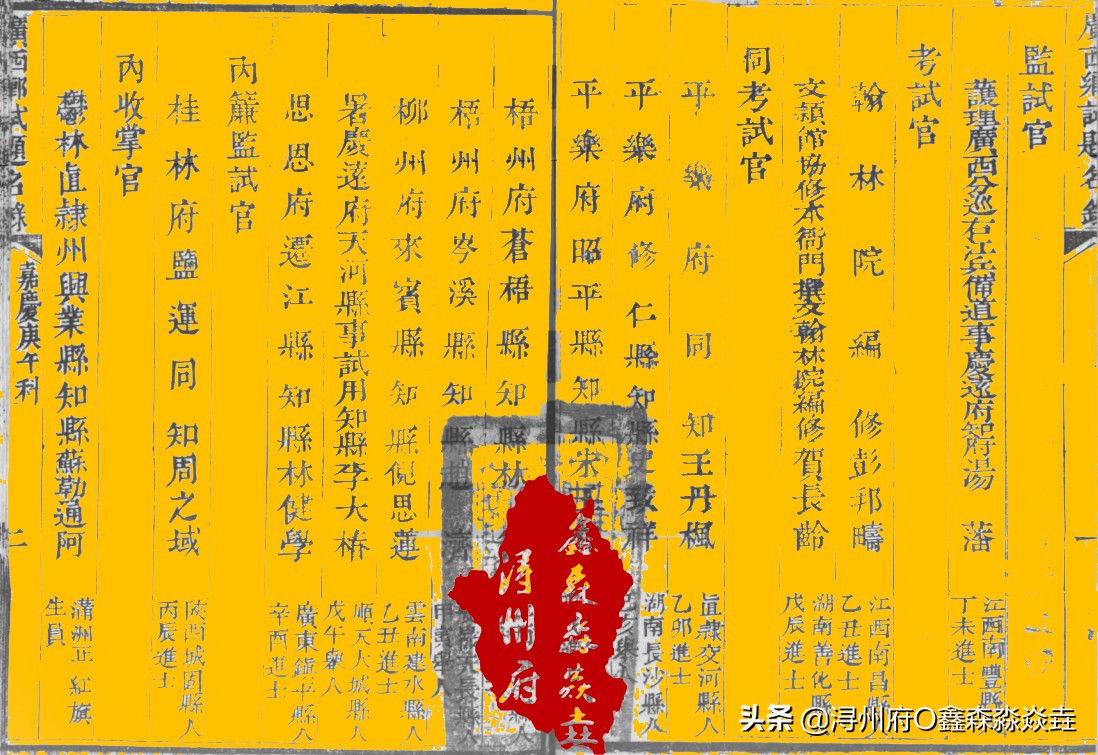 廣西鄉試題名錄
一
監試官
護理廣西分巡右江兵備道事慶遠府知府湯藩
江西南豐縣人
丁未進士
考試官
翰林院編修彭邦疇
江西南昌縣人
乙丑進士
文穎館協修本衙門撰文翰林院編修賀長齡
湖南善化縣人
戊辰進士
同考試官
平樂府同知王丹楓
直隸交河縣人
乙卯進士
平樂府修仁縣知縣史致祥
湖南長沙縣人
平樂府昭平縣知縣宋
梧州府蒼梧縣知縣林
梧州府岑溪縣知縣趙
柳州府來賓縣知縣倪思蓮
雲南建水縣人
乙丑進士
署慶遠府天河縣事試用知縣李大椿
順天大城縣人
戊午舉人
思恩府遷江縣知縣林健學
廣東鎮平縣人
辛酉進士
內簾監試官
桂林府鹽運同知周之域
陝西城固縣人
丙辰進士
內收掌官
鬱林直隸州興業縣知縣蘇勒通阿
滿洲正紅旗
生員
廣西鄉試題名錄
嘉慶庚午科
二
鑫森淼焱垚
浔州府
头条 @浔州府O鑫森淼焱垚